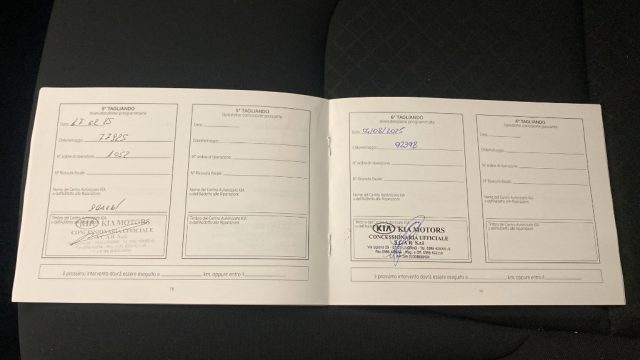 5° TAGLIANDO
manutenzione programmata
Data 17 02 25
Chilometraggio 77925
N° ordine di operazione 1052
N° Ricevuta fiscale
Nome del Centro Autorizzato KIA
o dell'addetto alle Riparazioni
Timbro del Centro Autorizzato KIA
KIA KIA MOTORS
CONCESSIONARIA UFFICIALE
5° TAGLIANDO
Ispezione corrosione passante
Data
Chilometraggio
N° ordine di operazione
N° Ricevuta fiscale
Nome del Centro Autorizzato KIA
o dell'addetto alle Riparazioni
Timbro del Centro Autorizzato KIA
o dell'addetto alle Riparazioni
Il prossimo intervento dovrà essere eseguito a km, oppure entro il
6° TAGLIANDO
manutenzione programmata
Data 04/08/2025
Chilometraggio 92398
N° ordine di operazione
N° Ricevuta fiscale
Nome del Centro Autorizzato KIA
o dell'addetto alle Riparazioni
KIA KIA MOTORS
CONCESSIONARIA UFFICIALE
6° TAGLIANDO
Ispezione corrosione passante
Data
Chilometraggio
N° ordine di operazione
N° Ricevuta fiscale
Nome del Centro Autorizzato KIA
o dell'addetto alle Riparazioni
Timbro del Centro Autorizzato KIA
o dell'addetto alle Riparazioni
Il prossimo intervento dovrà essere eseguito a km, oppure entro il